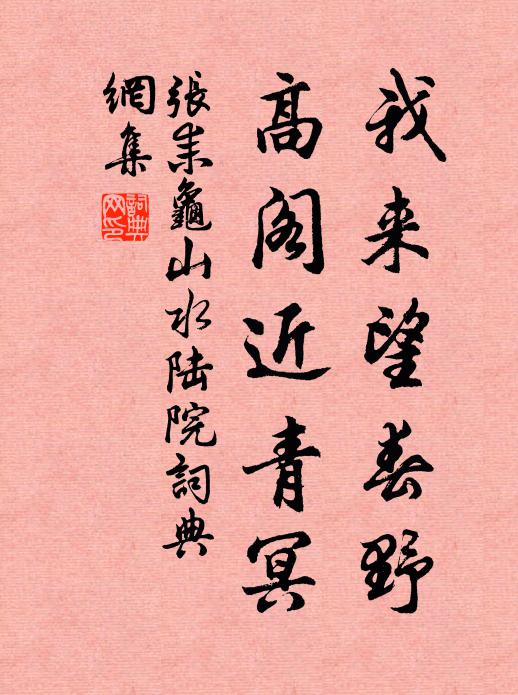 我来望春野
高阁近青冥
張耒龜山水陆院詞典
網集
詞典
网印